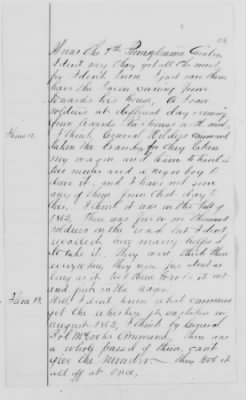 the 9th Pennsylvania Cavalry,
I don't say they got all the meat,
for I don't know. I just saw them
have the Bacon coming from
towards his house, & I saw
soldiers at different days coming
from towards his house with meat.
Item 12. I think General Hildigs command
taken the brandy for they taken
my wagon and team to haul it.
two mules and a negro boy to
drive it, and I have not seen
any of them from that day to
this. I think it was in the fall of
1862, There was five or six thousand
soldiers in the road but I don't
recollect how many helped
to take it. They went about there
every where, they were just about as
long as it took them to roll it out
and put in the wagon.
Item 13. Well I don't know what command
got the whiskey, it was taken in
August 1862, I think by General
Bob McCooks Command, there was
a whole passel of them, can't
give the number — they took it
all off at once,